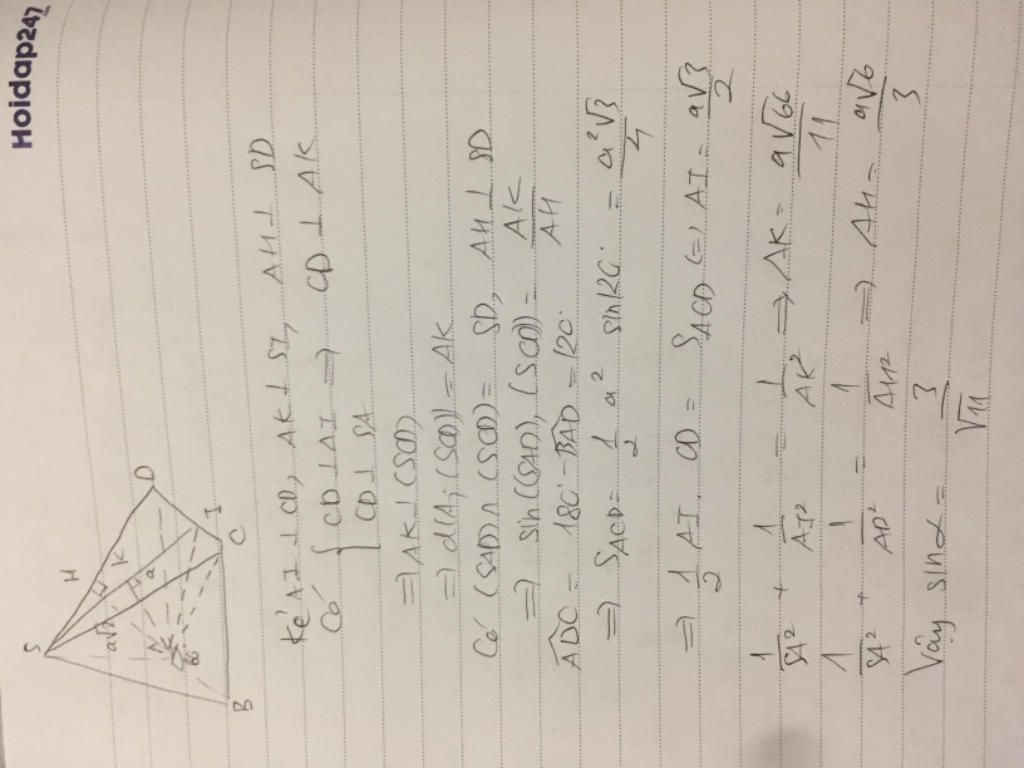 Hoidap247
.com
S
H
D
K
a√2
a
A
60°
I
B
C
Kẻ AI ⊥ CD, AK ⊥ SI, AH ⊥ SD
Có { CD ⊥ AI ⇒ CD ⊥ AK
CD ⊥ SA
⇒ AK ⊥ (SCD)
⇒ d(A; (SCD)) = AK
Có (SAD) ∩ (SCD) = SD, AH ⊥ SD
⇒ sin((SAD), (SCD)) = AK/AH
ADC = 180° - BAD = 120°
⇒ S_ACD = 1/2 a² sin 120° = a²√3/4
⇒ 1/2 AI. CD = S_ACD (=) AI = a√3/2
1/SA² + 1/AI² = 1/AK² ⇒ AK = a√66/11
1/SA² + 1/AD² = 1/AH² ⇒ AH = a√6/3
Vậy sinα = 3/√11